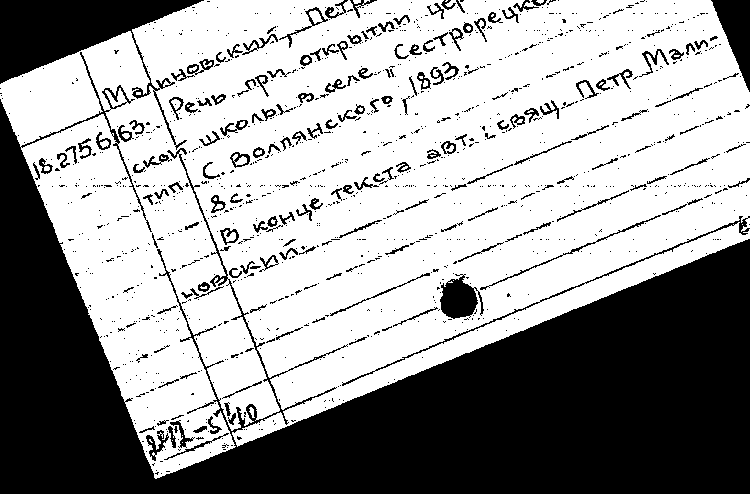 Малиновский, Петр
18.275.6.163. Речь при открытии цер
ской школы в селе „Сестрорецке
тип. С. Волпянского, 1893.
8 с.
В конце текста авт.: свящ. Петр Мали-
новский.